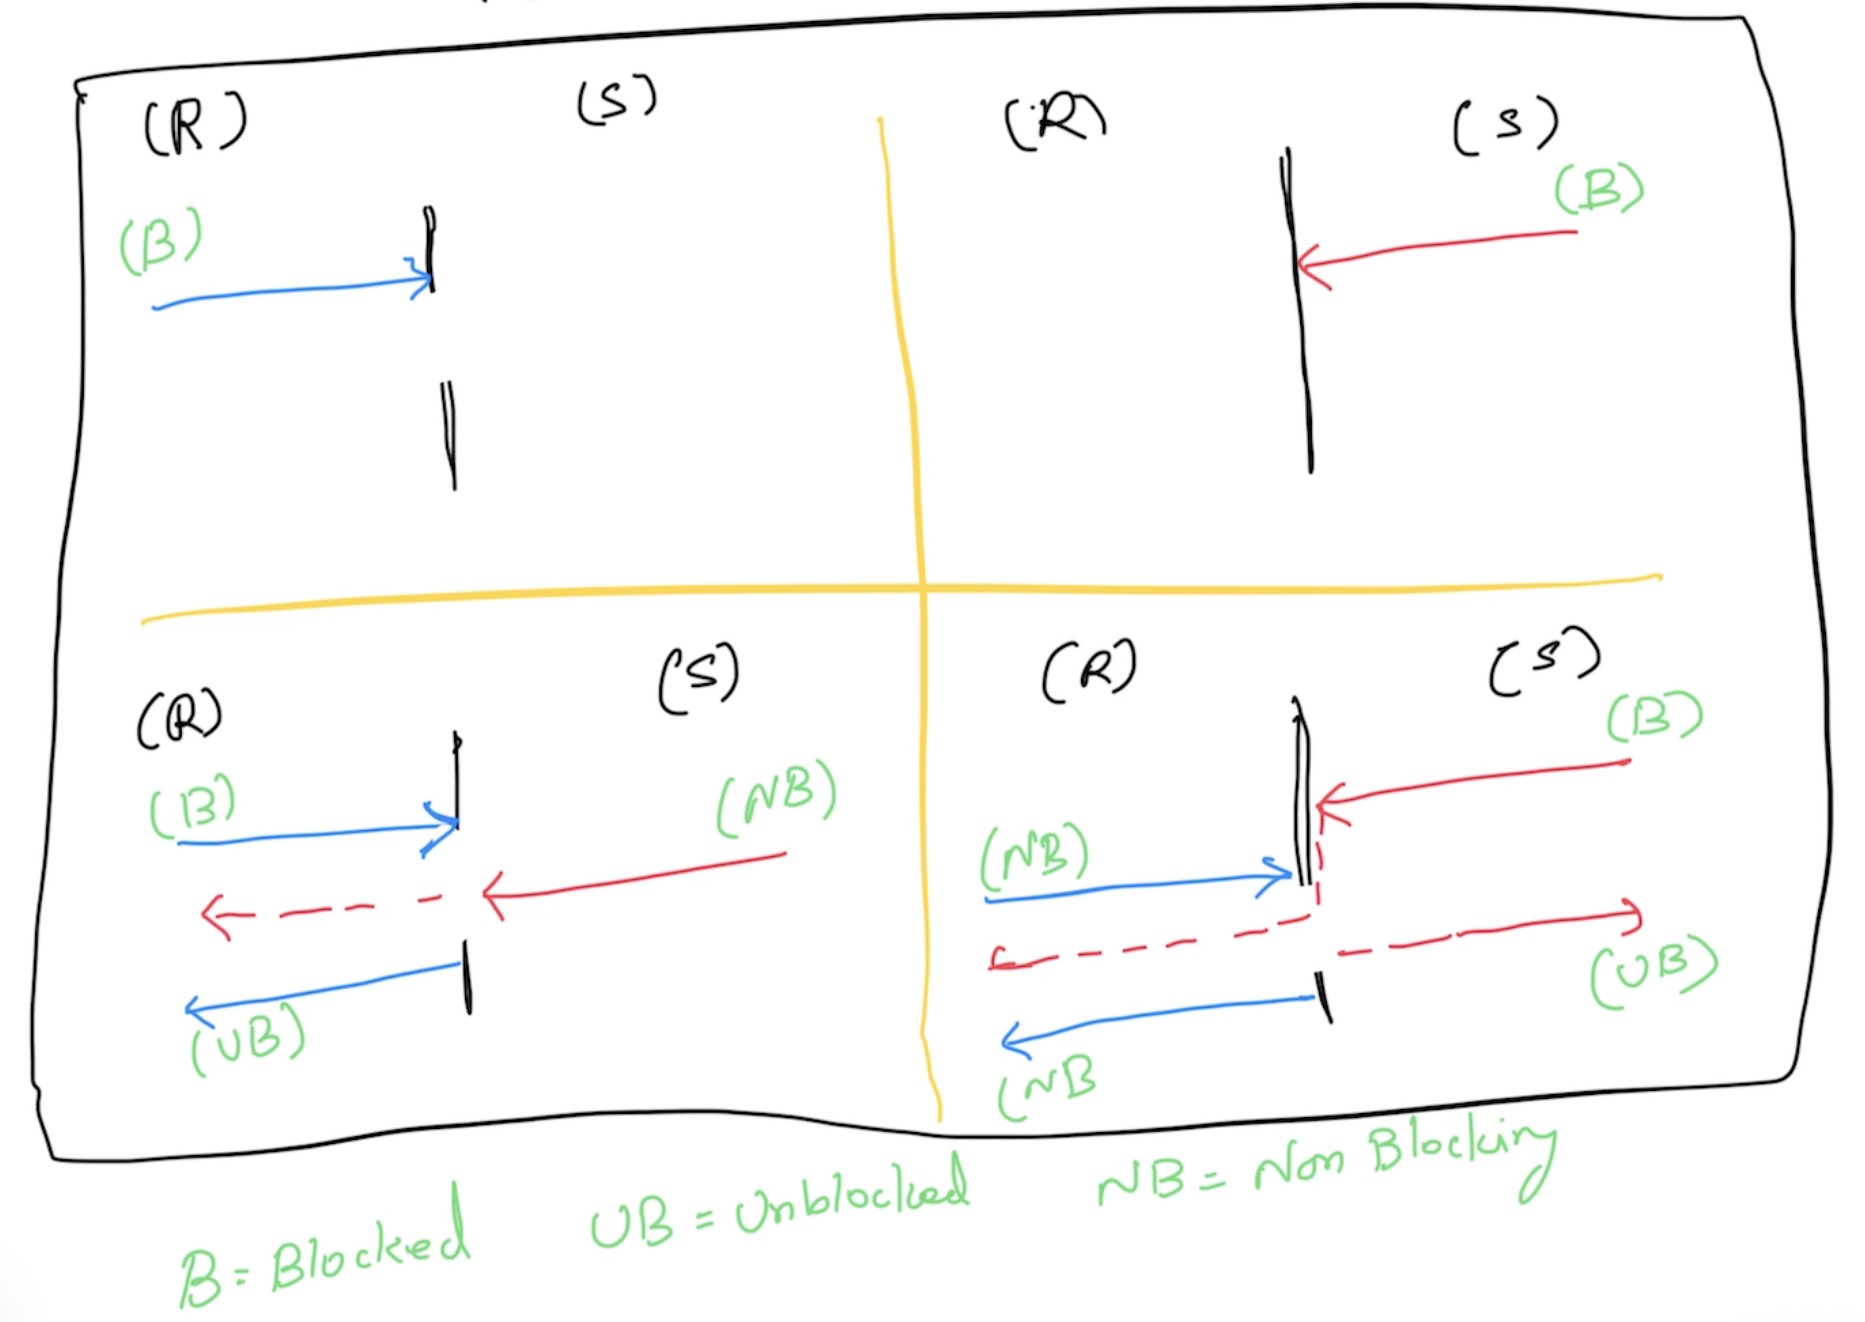 (R) (S)
(B)
(R) (S)
(B)
(R) (S)
(B) (NB)
(UB)
(R) (S)
(B)
(NB)
(UB)
(NB
B = Blocked UB = Unblocked NB = Non Blocking